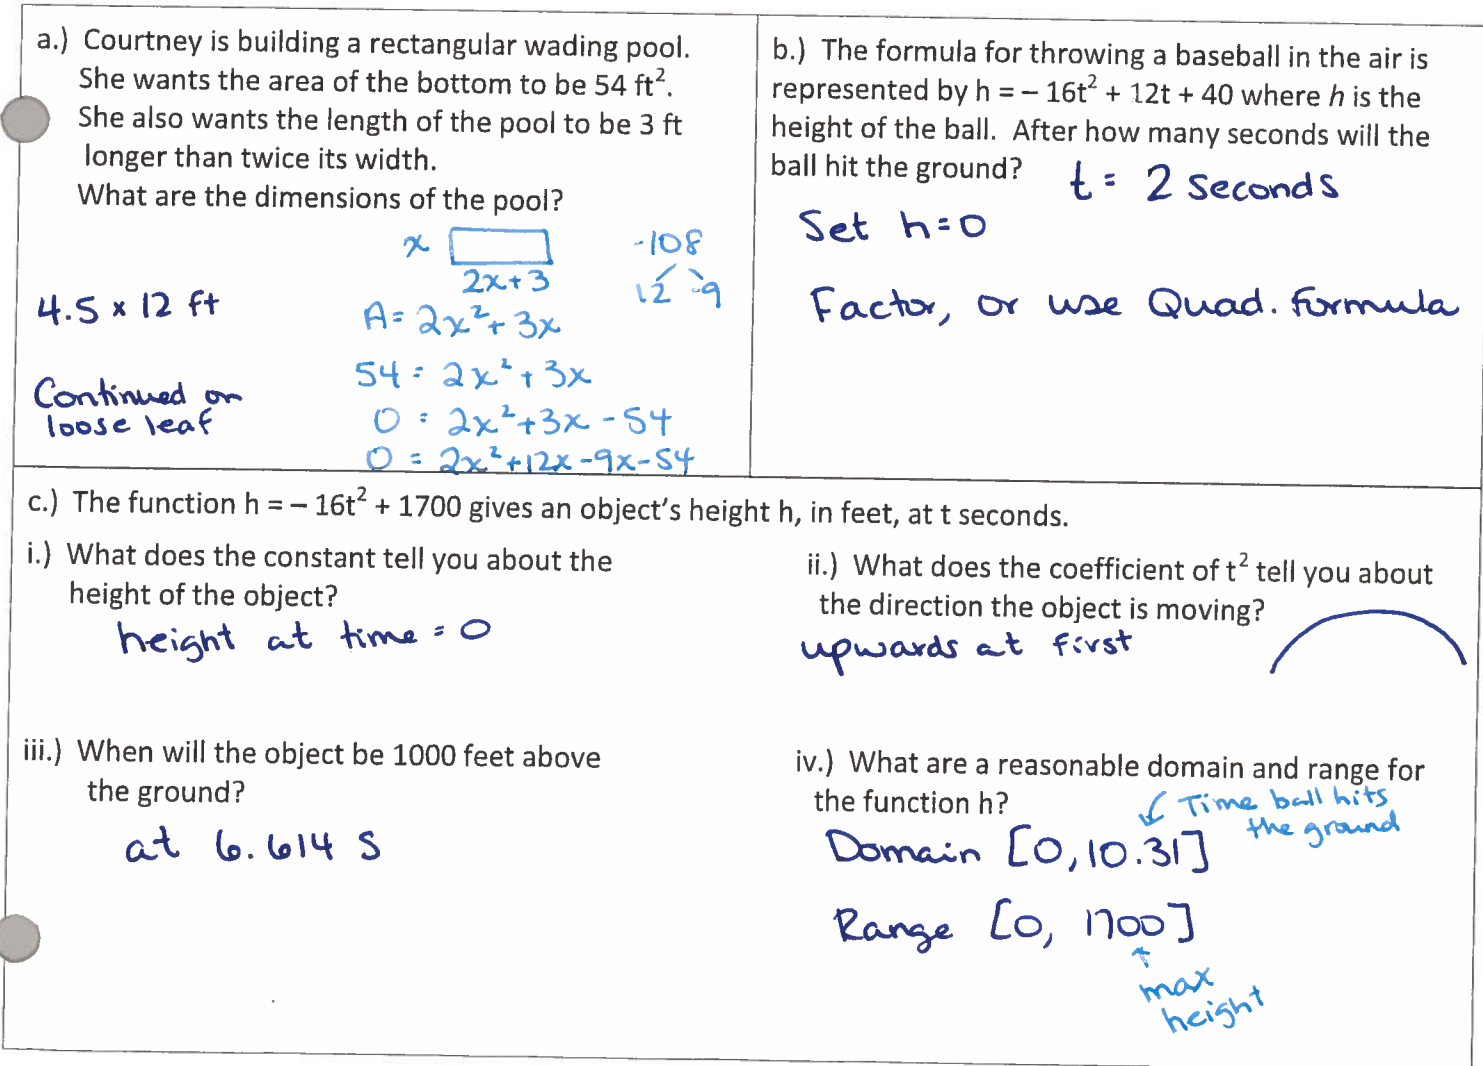 a.) Courtney is building a rectangular wading pool.
She wants the area of the bottom to be 54 ft².
She also wants the length of the pool to be 3 ft
longer than twice its width.
What are the dimensions of the pool?
x
2x+3
-108
12 -9
4.5 x 12 ft
A = 2x² + 3x
54 = 2x² + 3x
Continued on
loose leaf
0 = 2x² + 3x - 54
0 = 2x² + 12x - 9x - 54
b.) The formula for throwing a baseball in the air is
represented by h = – 16t² + 12t + 40 where h is the
height of the ball. After how many seconds will the
ball hit the ground?
t = 2 seconds
Set h = 0
Factor, or use Quad. formula
c.) The function h = – 16t² + 1700 gives an object's height h, in feet, at t seconds.
i.) What does the constant tell you about the
height of the object?
height at time = 0
ii.) What does the coefficient of t² tell you about
the direction the object is moving?
upwards at first
iii.) When will the object be 1000 feet above
the ground?
at 6.614 s
iv.) What are a reasonable domain and range for
the function h?
Time ball hits
the ground
Domain [0, 10.31]
Range [0, 1700]
max
height